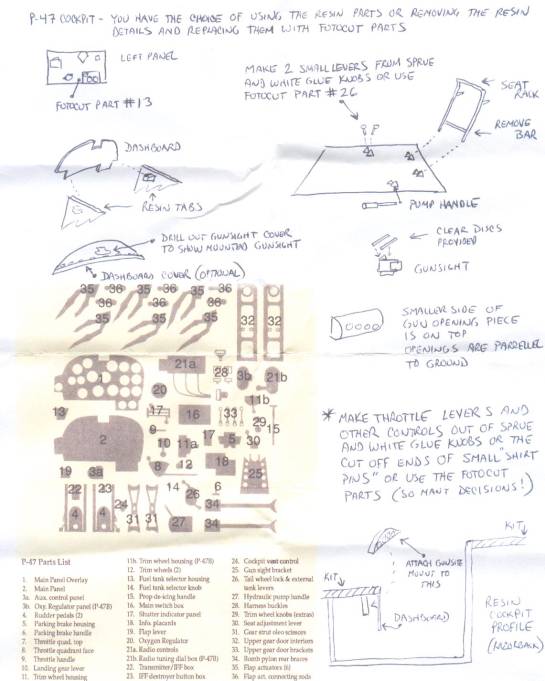 P-47 COCKPIT - YOU HAVE THE CHOICE OF USING THE RESIN PARTS OR REMOVING THE RESIN
DETAILS AND REPLACING THEM WITH FOTOCUT PARTS
LEFT PANEL
FOTOCUT PART #13
MAKE 2 SMALL LEVERS FROM SPRUE
AND WHITE GLUE KNOBS OR USE
FOTOCUT PART #26
SEAT
RACK
REMOVE
BAR
DASHBOARD
RESIN TABS
PUMP HANDLE
DRILL OUT GUNSIGHT COVER
TO SHOW MOUNTED GUNSIGHT
DASHBOARD COVER (OPTIONAL)
CLEAR DISCS
PROVIDED
GUNSIGHT
SMALLER SIDE OF
GUN OPENING PIECE
IS ON TOP
OPENINGS ARE PARRELLER
TO GROUND
35 36 35 36 35 36
36 36 36
35 35 35
32 32
1
21a
28 3b 21b
20
11b
13 17 16 33 29
2
9 10 11a 17 5 30 15
8 12 18
19 3a
14 26 6 25
22 23 24
4 4 31 31 27 34
34
* MAKE THROTTLE LEVERS AND
OTHER CONTROLS OUT OF SPRUE
AND WHITE GLUE KNOBS OR THE
CUT OFF ENDS OF SMALL "SHIRT
PINS" OR USE THE FOTOCUT
PARTS (SO MANY DECISIONS!)
KIT
ATTACH GUNSITE
MOUNT TO
THIS
KIT
DASHBOARD
RESIN
COCKPIT
PROFILE
(RAZORBACK)
P-47 Parts List
1. Main Panel Overlay
2. Main Panel
3a. Aux. control panel
3b. Oxy. Regulator panel (P-47B)
4. Rudder pedals (2)
5. Parking brake housing
6. Parking brake handle
7. Throttle quad. top
8. Throttle quadrant face
9. Throttle handle
10. Landing gear lever
11. Trim wheel housing
11b. Trim wheel housing (P-47B)
12. Trim wheels (2)
13. Fuel tank selector housing
14. Fuel tank selector knob
15. Prop de-icing handle
16. Main switch box
17. Shutter indicator panel
18. Info. placards
19. Flap lever
20. Oxygen Regulator
21a. Radio controls
21b. Radio tuning dial box (P-47B)
22. Transmitter/IFF box
23. IFF destroyer button box
24. Cockpit vent control
25. Gun sight bracket
26. Tail wheel lock & external
tank levers
27. Hydraulic pump handle
28. Harness buckles
29. Trim wheel knobs (extras)
30. Seat adjustment lever
31. Gear strut oleo scissors
32. Upper gear door interiors
33. Upper gear door brackets
34. Bomb pylon rear braces
35. Flap actuators (6)
36. Flap art. connecting rods